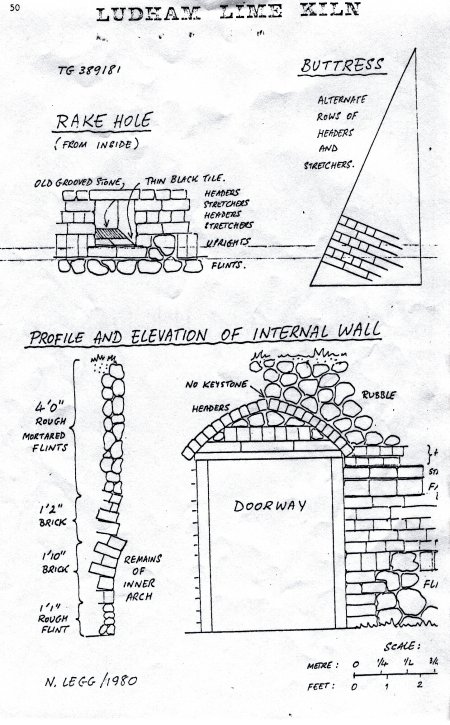 50
LUDHAM LIME KILN
TG 389181
BUTTRESS
ALTERNATE
ROWS OF
HEADERS
AND
STRETCHERS.
RAKE HOLE
(FROM INSIDE)
OLD GROOVED STONE,
THIN BLACK TILE.
HEADERS
STRETCHERS
HEADERS
STRETCHERS
UPRIGHTS
FLINTS.
PROFILE AND ELEVATION OF INTERNAL WALL
NO KEYSTONE
HEADERS
RUBBLE
4'0"
ROUGH
MORTARED
FLINTS
1'2"
BRICK
1'10"
BRICK
REMAINS
OF
INNER
ARCH
1'1"
ROUGH
FLINT
DOORWAY
SCALE:
METRE: 0 1/4 1/2
FEET: 0 1 2
N. LEGG/1980